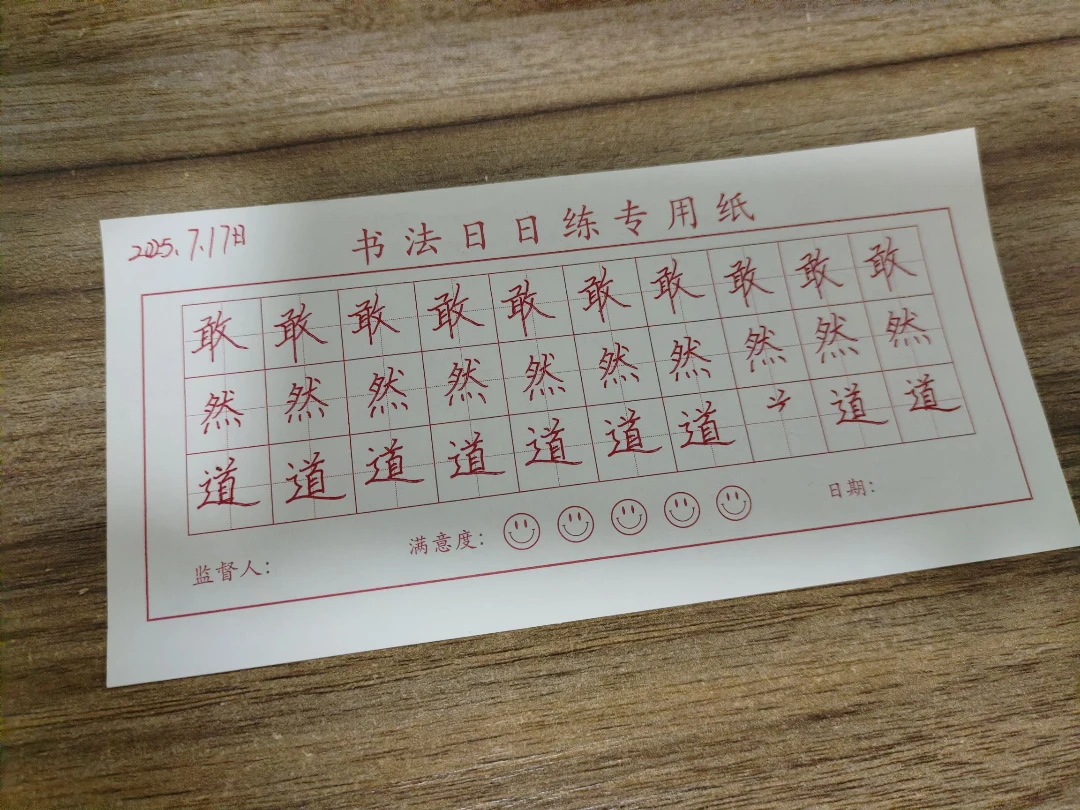 2025.7.17日
书法日日练专用纸
敢敢敢敢敢敢敢敢敢敢
然然然然然然然然然然
道道道道道道道道道
监督人: 满意度: 日期: